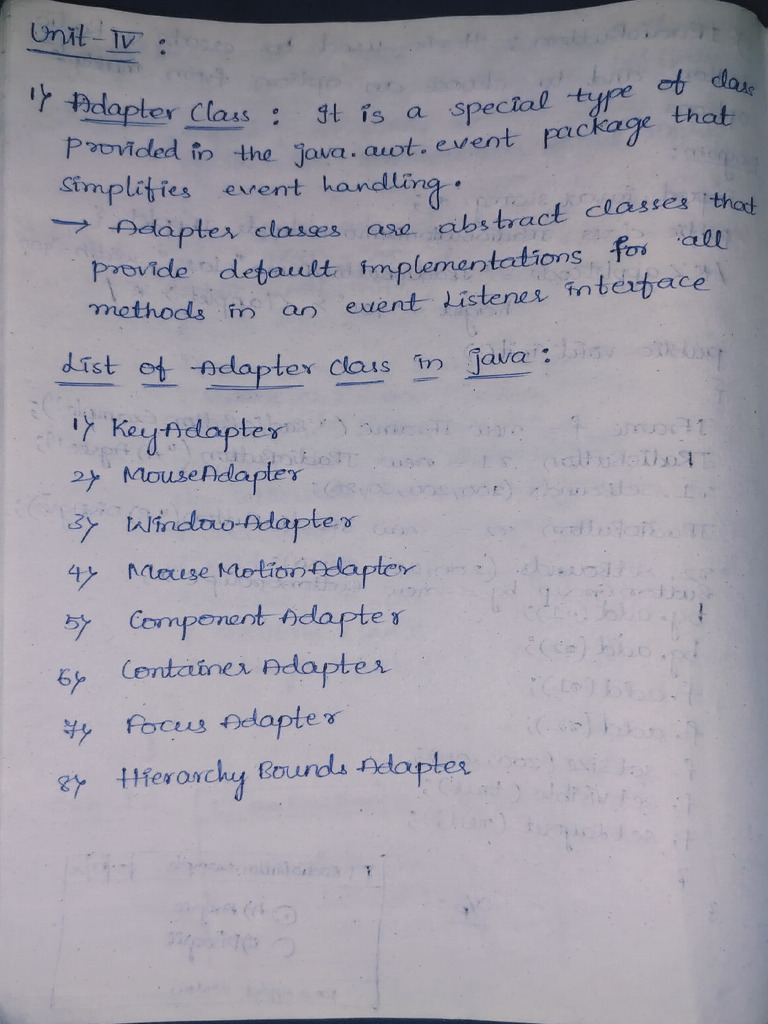 Unit-IV :
1) Adapter Class : It is a special type of class
provided in the java.awt.event package that
simplifies event handling.
→ Adapter classes are abstract classes that
provide default implementations for all
methods in an event Listener interface
List of Adapter class in java :
1) KeyAdapter
2) MouseAdapter
3) WindowAdapter
4) Mouse Motion Adapter
5) Component Adapter
6) Container Adapter
7) Focus Adapter
8) Hierarchy Bounds Adapter